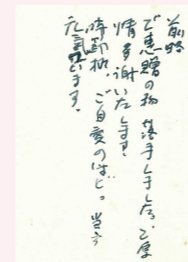 前略
ご恵贈の物 落手しました。ご厚
情多謝いたします。
時節柄、ご自愛のほどっ 当方
元気でいます。